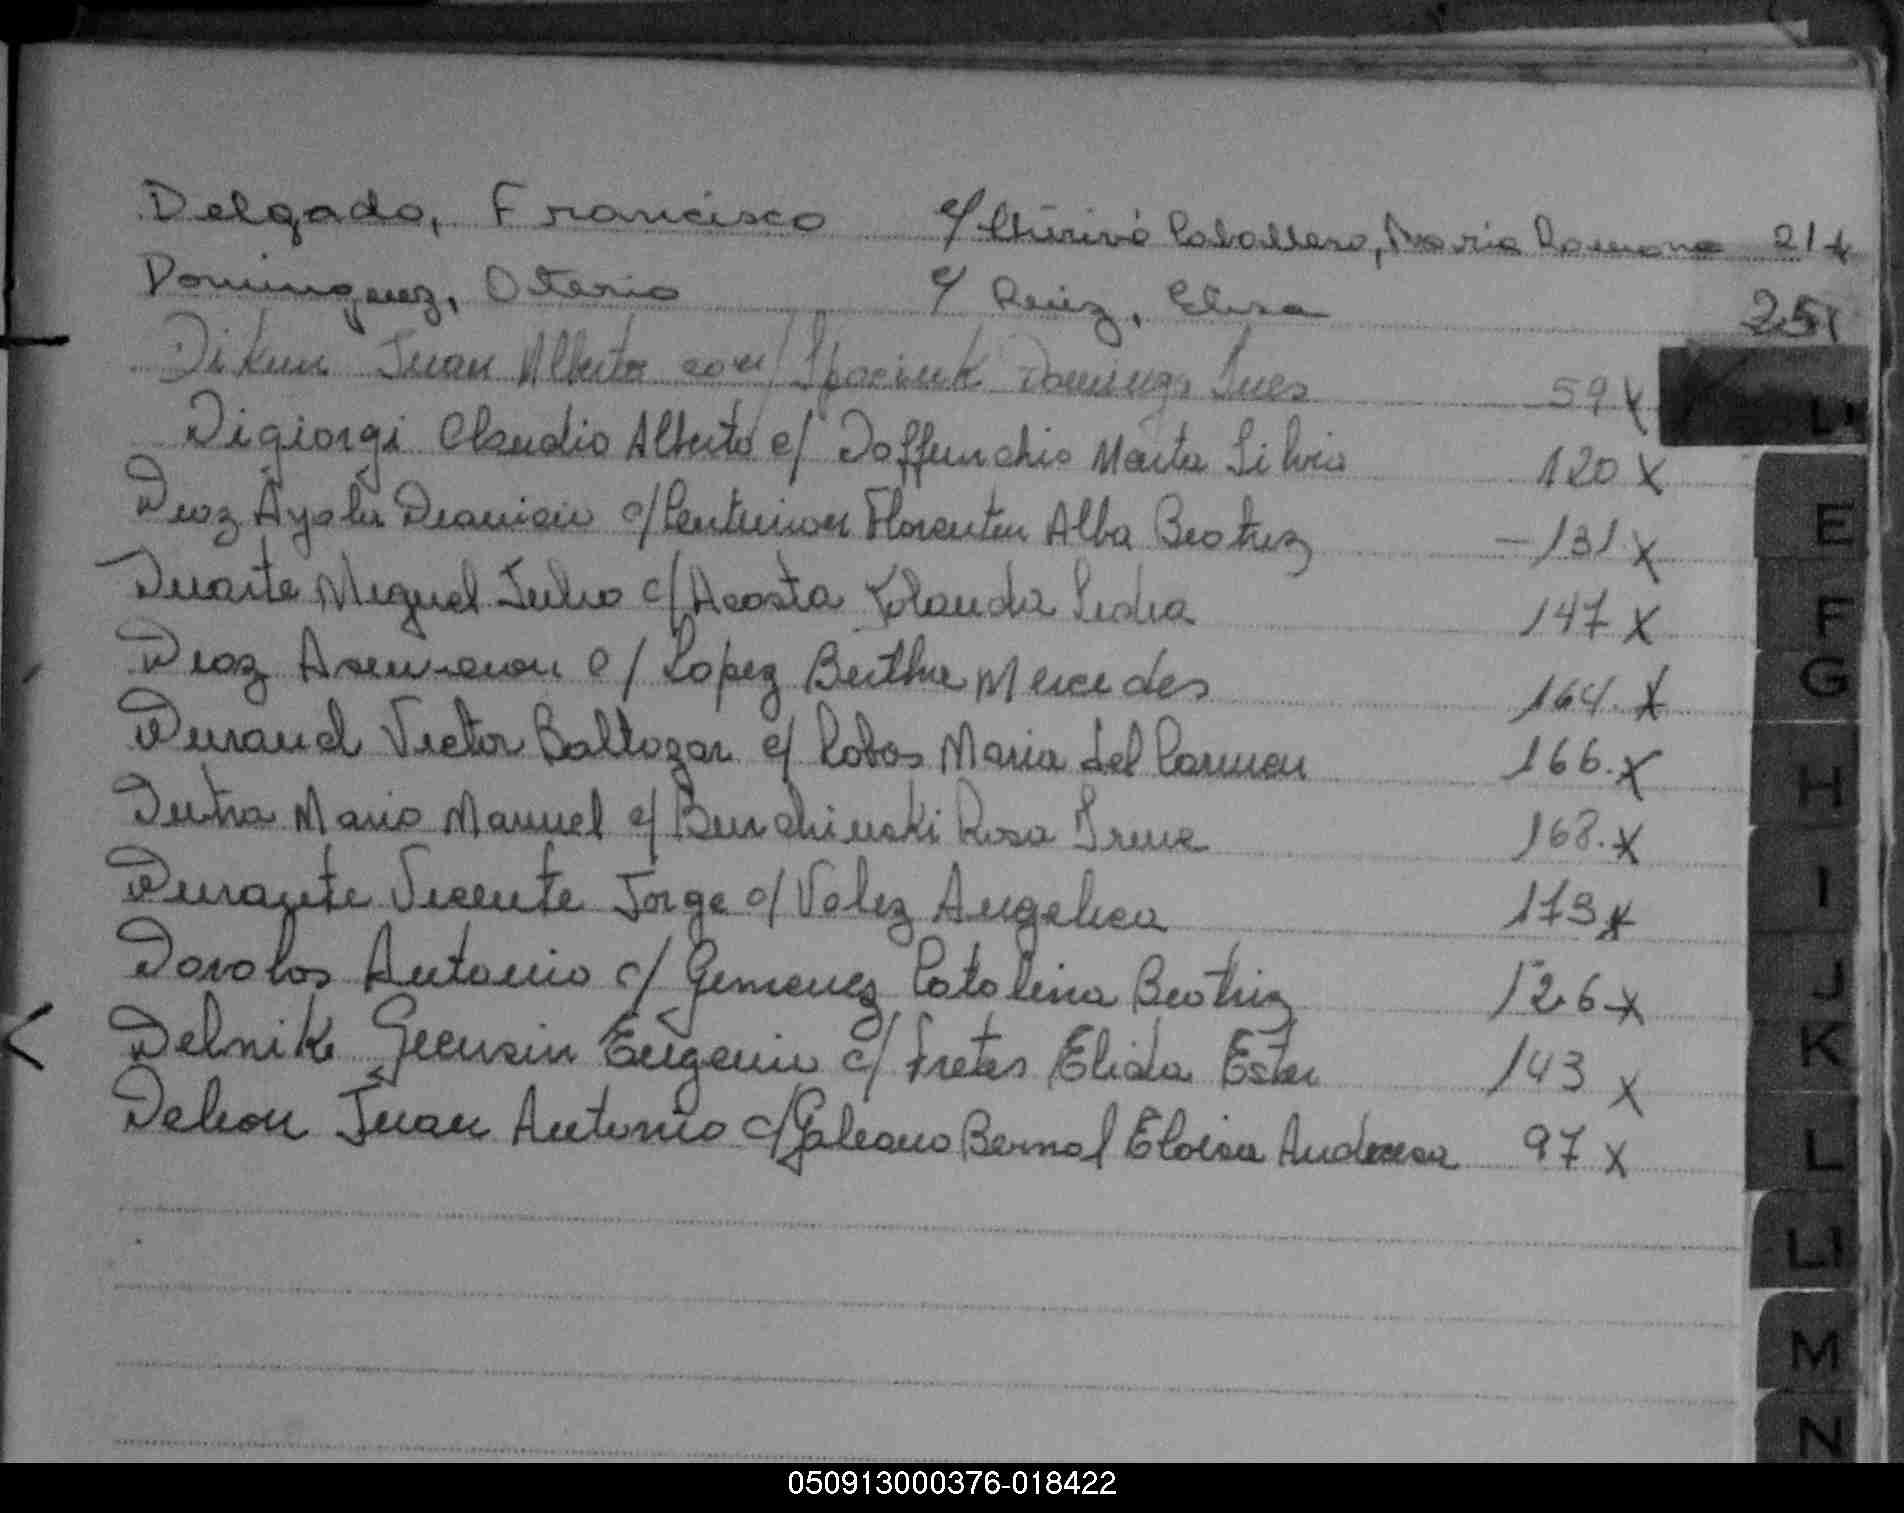 Delgado, Francisco c/ Caballero, Maria Ramona 21 x
Dominguez, Oterio c/ Ruiz, Elisa 25 x
Dikun Juan Alberto con/ Spaciuk Dominga Ines 59 x
Digiorgi Claudio Alberto c/ Doffunchio Marta Silvia 120 x
Diaz Ayala Dionicio c/ Centurion Florentin Alba Beatriz - 131 x
Duarte Miguel Julio c/ Acosta Yolanda Lidia 147 x
Diaz Asuncion c/ Lopez Bertha Mercedes 164. x
Durand Victor Baltazar c/ Lobos Maria del Carmen 166. x
Dutra Mario Manuel c/ Burchinski Rosa Irene 168. x
Durante Vicente Jorge c/ Velez Angelica 173 x
Davalos Antonio c/ Gimenez Catalina Beatriz 126 x
Delnik Eugenio c/ Fretes Elida Ester 143 x
Deleon Juan Antonio c/ Galeano Bernal Eloisa Andresa 97 x
E
F
G
H
I
J
K
L
Ll
M
N
050913000376-018422